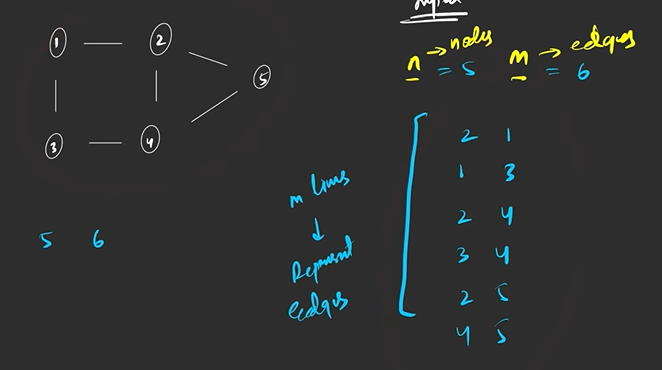 1 2
5
3 4
5 6
n → nodes m → edges
= 5 = 6
m lines
↓
Represent
edges
2 1
1 3
2 4
3 4
2 5
4 5